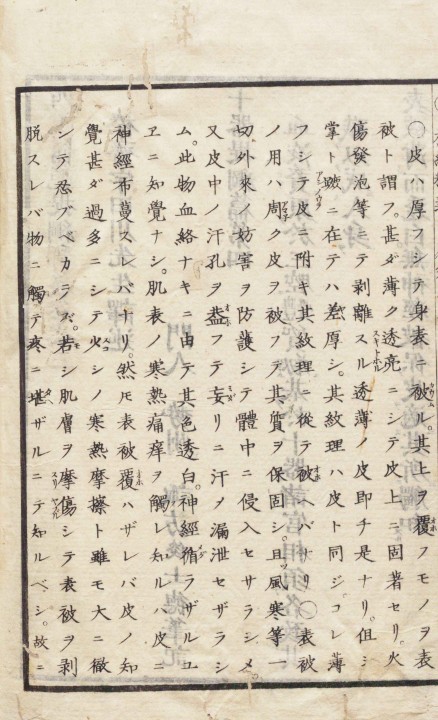 〇皮ハ厚フシテ身表ニ被ル。其上ヲ覆フモノヲ表
被ト謂フ。甚ダ薄ク透亮ニシテ皮上ニ固著セリ。火
傷發泡等ニテ剥離スル透薄ノ皮即チ是ナリ。但シ
掌ト蹠ニ在テハ差厚シ。其紋理ハ皮ト同ジ。コレ薄
フシテ皮ニ附キ其紋理ニ從テ被ヘバナリ〇表被
ノ用ハ周ク皮ヲ被フテ其質ヲ保固シ。且ツ風寒等一
切外來ノ妨害ヲ防護シテ體中ニ侵入セサラシメ。
又皮中ノ汗孔ヲ蓋フテ妄リニ汗ヲ漏泄セザラシ
ム。此物血絡ナキニ由テ其色透白。神經循ラザルユ
ヱニ知覺ナシ。肌表ノ寒熱痛痒ヲ觸レ知ルハ皮ニ
神經布蔓スレバナリ。然モ表被覆ハザレバ皮ノ知
覺甚ダ過多ニシテ火シノ寒熱摩擦ト雖モ大ニ徹
シテ忍ブベカラズ。若シ肌膚ヲ摩傷シテ表被ヲ剥
脱スレバ物ニ觸テ疼ニ堪ザルニテ知ルベシ。故ニ